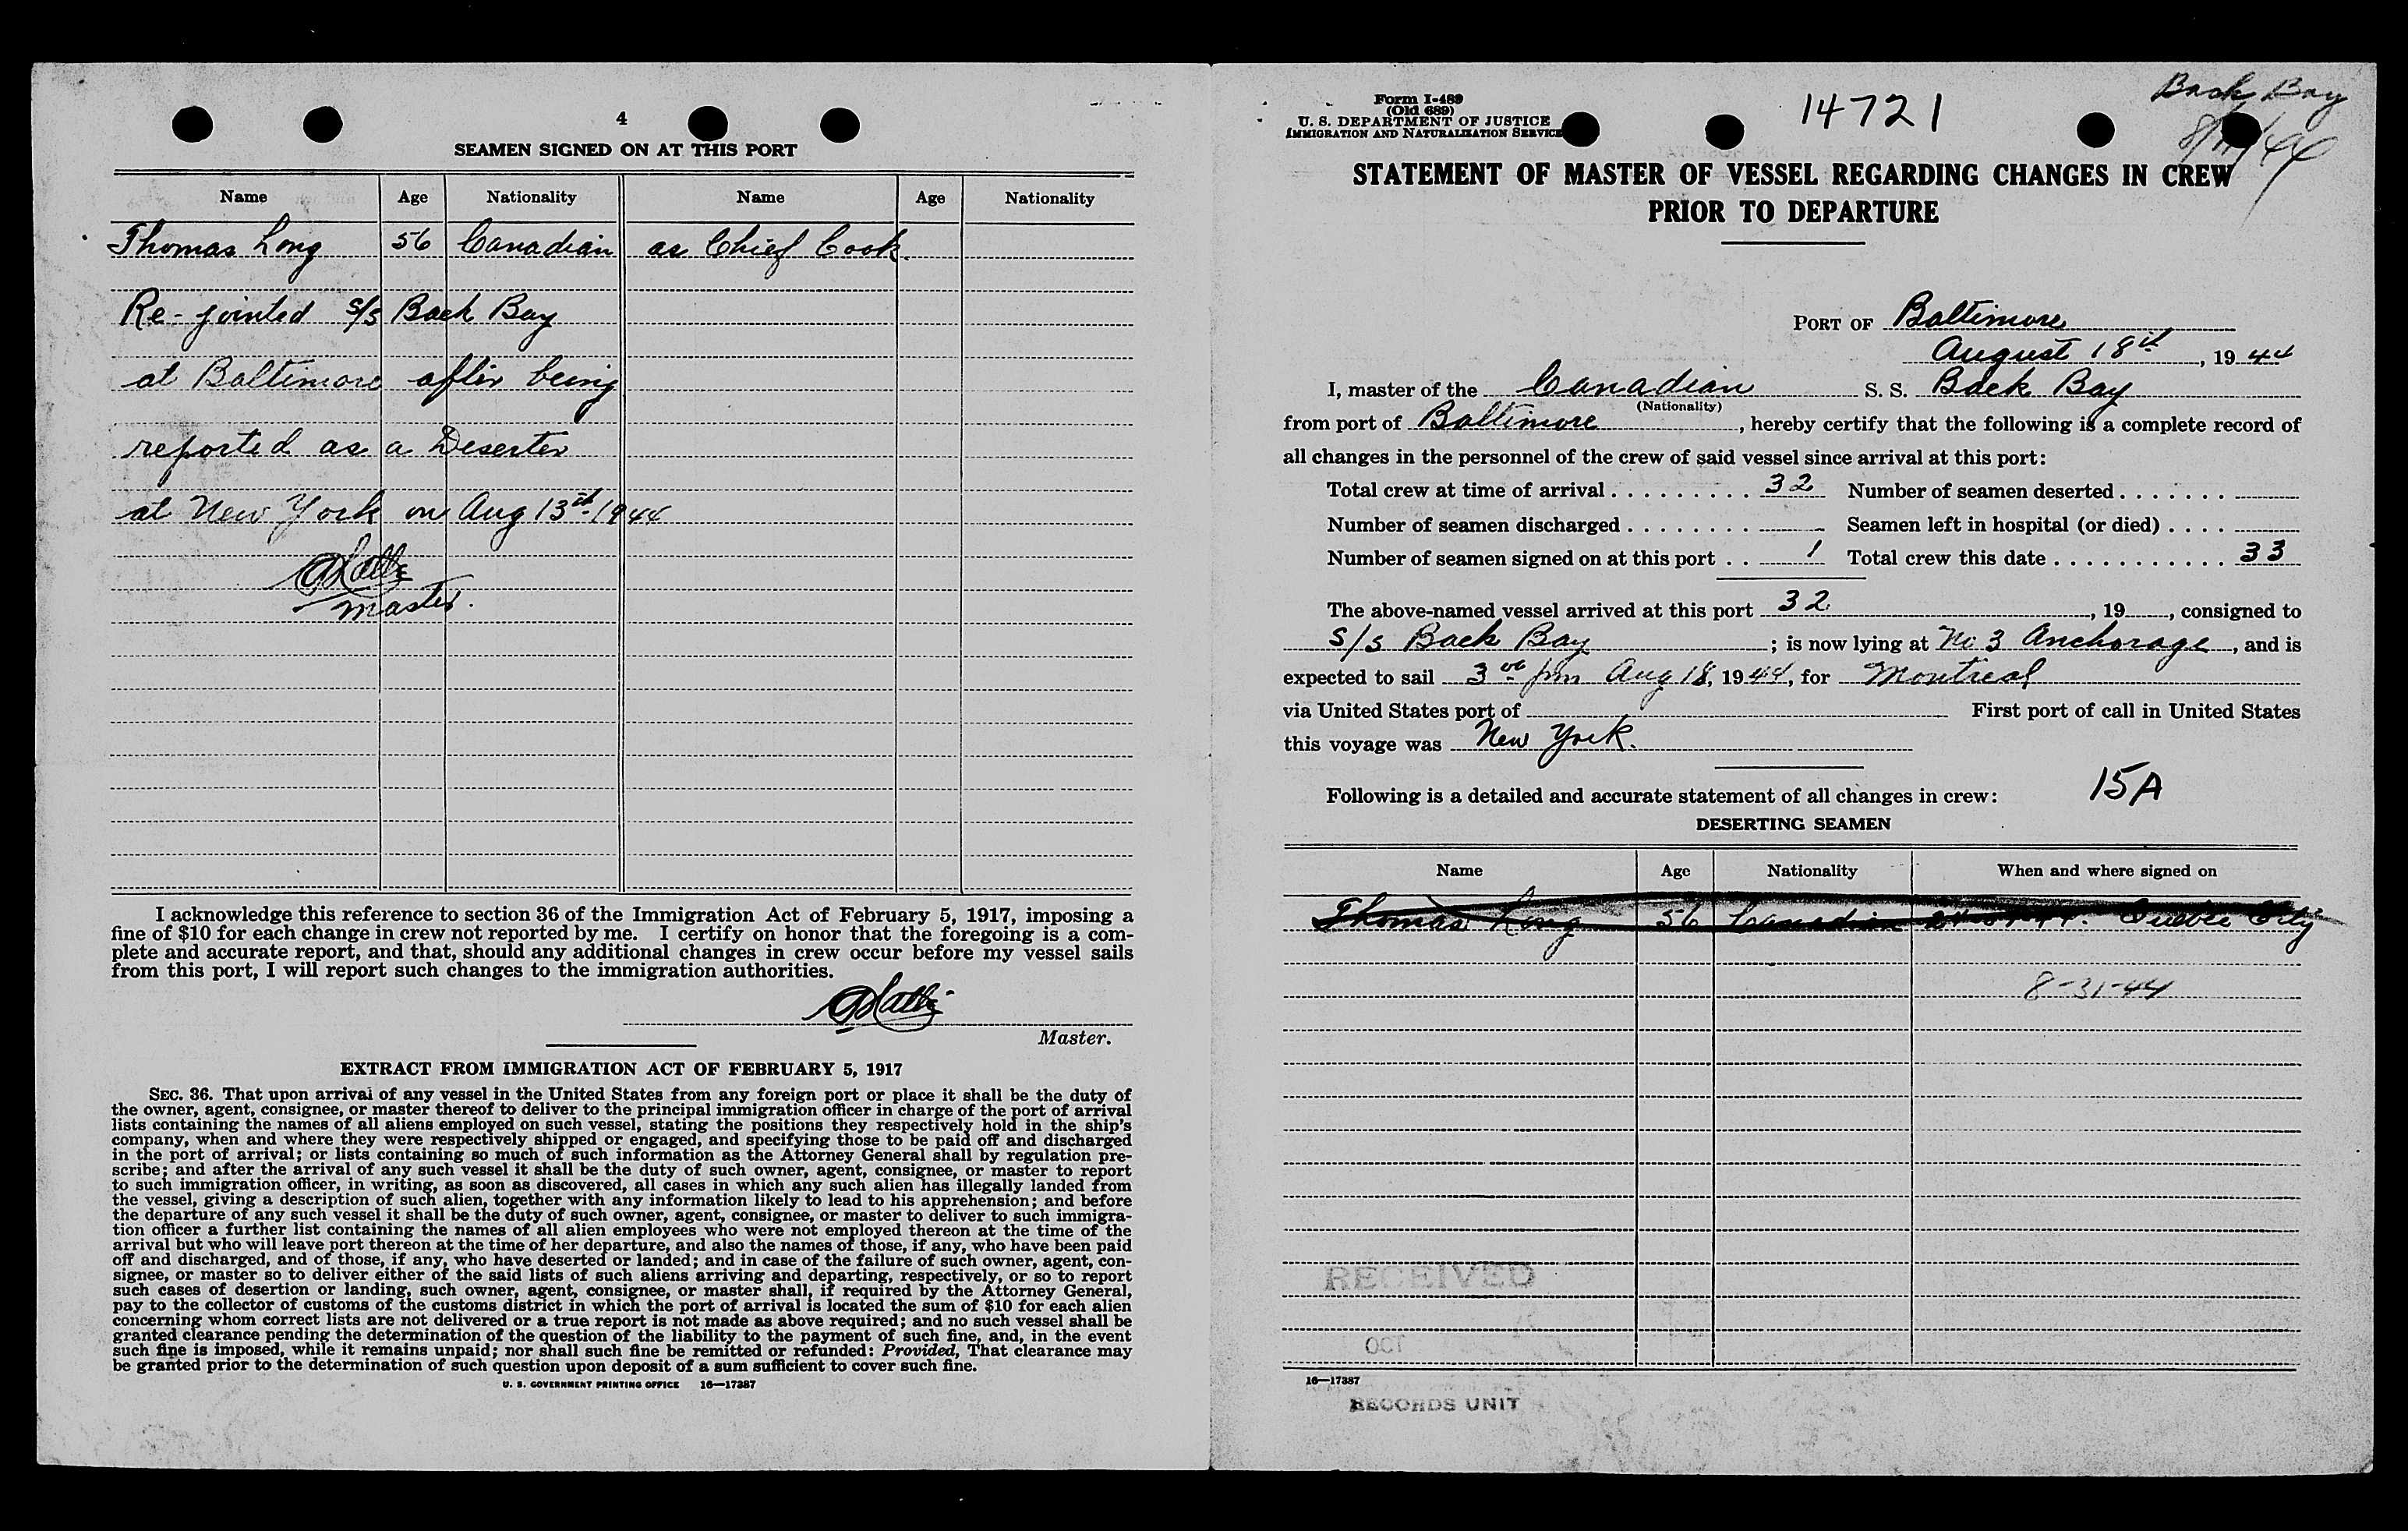 4
SEAMEN SIGNED ON AT THIS PORT
Name Age Nationality Name Age Nationality
Thomas Long 56 Canadian as Chief Cook.
Re-jointed s/s Back Bay
at Baltimore after being
reported as a Deserter
at New York on Aug 13th 1944
Master.
I acknowledge this reference to section 36 of the Immigration Act of February 5, 1917, imposing a
fine of $10 for each change in crew not reported by me. I certify on honor that the foregoing is a com-
plete and accurate report, and that, should any additional changes in crew occur before my vessel sails
from this port, I will report such changes to the immigration authorities.
Master.
EXTRACT FROM IMMIGRATION ACT OF FEBRUARY 5, 1917
SEC. 36. That upon arrival of any vessel in the United States from any foreign port or place it shall be the duty of
the owner, agent, consignee, or master thereof to deliver to the principal immigration officer in charge of the port of arrival
lists containing the names of all aliens employed on such vessel, stating the positions they respectively hold in the ship's
company, when and where they were respectively shipped or engaged, and specifying those to be paid off and discharged
in the port of arrival; or lists containing so much of such information as the Attorney General shall by regulation pre-
scribe; and after the arrival of any such vessel it shall be the duty of such owner, agent, consignee, or master to report
to such immigration officer, in writing, as soon as discovered, all cases in which any such alien has illegally landed from
the vessel, giving a description of such alien, together with any information likely to lead to his apprehension; and before
the departure of any such vessel it shall be the duty of such owner, agent, consignee, or master to deliver to such immigra-
tion officer a further list containing the names of all alien employees who were not employed thereon at the time of the
arrival but who will leave port thereon at the time of her departure, and also the names of those, if any, who have been paid
off and discharged, and of those, if any, who have deserted or landed; and in case of the failure of such owner, agent, con-
signee, or master so to deliver either of the said lists of such aliens arriving and departing, respectively, or so to report
such cases of desertion or landing, such owner, agent, consignee, or master shall, if required by the Attorney General,
pay to the collector of customs of the customs district in which the port of arrival is located the sum of $10 for each alien
concerning whom correct lists are not delivered or a true report is not made as above required; and no such vessel shall be
granted clearance pending the determination of the question of the liability to the payment of such fine, and, in the event
such fine is imposed, while it remains unpaid; nor shall such fine be remitted or refunded: Provided, That clearance may
be granted prior to the determination of such question upon deposit of a sum sufficient to cover such fine.
U. S. GOVERNMENT PRINTING OFFICE 16—17387
Form I-489
(Old 689)
U. S. DEPARTMENT OF JUSTICE
IMMIGRATION AND NATURALIZATION SERVICE
14721
Back Bay
STATEMENT OF MASTER OF VESSEL REGARDING CHANGES IN CREW
PRIOR TO DEPARTURE
PORT OF Baltimore
August 18th, 1944
I, master of the Canadian S. S. Back Bay
(Nationality)
from port of Baltimore, hereby certify that the following is a complete record of
all changes in the personnel of the crew of said vessel since arrival at this port:
Total crew at time of arrival 32 Number of seamen deserted
Number of seamen discharged Seamen left in hospital (or died)
Number of seamen signed on at this port 1 Total crew this date 33
The above-named vessel arrived at this port 32, 19, consigned to
S/s Back Bay; is now lying at No 3 Anchorage, and is
expected to sail 3 00 pm Aug 18, 1944, for Montreal
via United States port of First port of call in United States
this voyage was New York.
Following is a detailed and accurate statement of all changes in crew: 15A
DESERTING SEAMEN
Name Age Nationality When and where signed on
Thomas Long 56 Canadian Quebec City
8-31-44
RECEIVED
OCT
16—17387
RECORDS UNIT